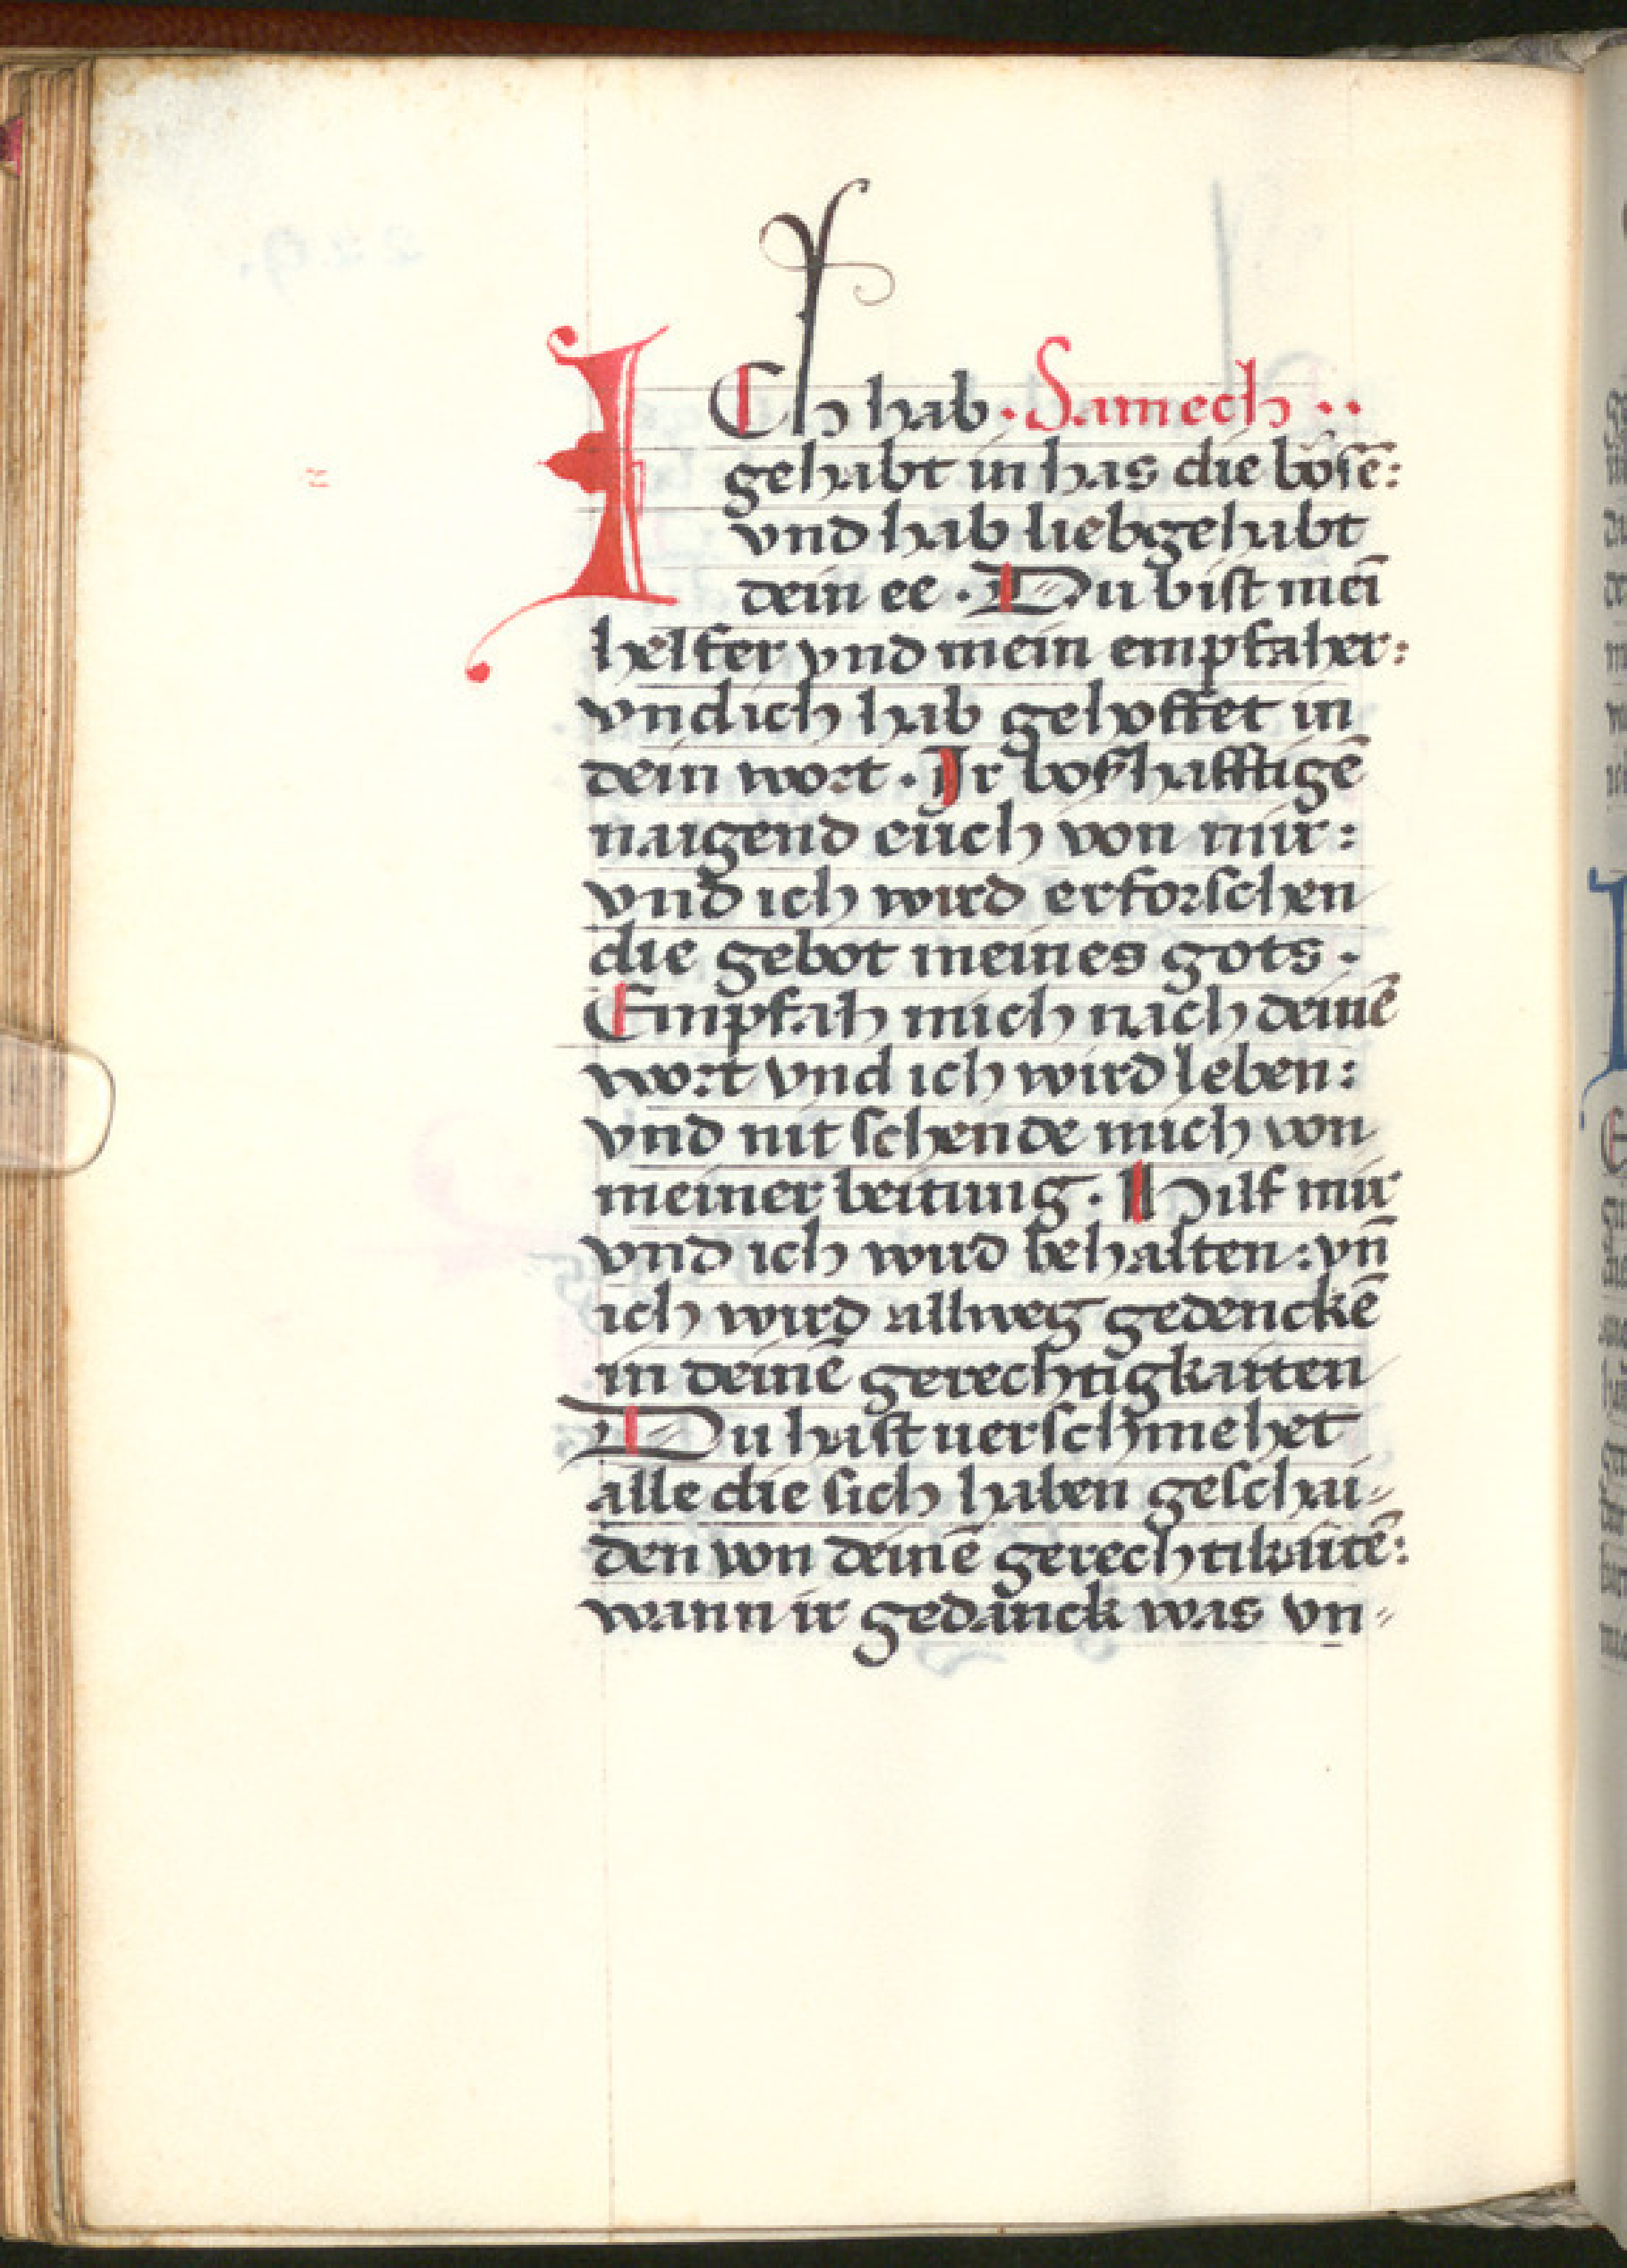 ICh hab · Samech ··
gehabt in has die bösē:
vnd hab liebgehabt
dein ee · Du bist mei̅
helfer vnd mein empfaher:
vnd ich hab gehoffet in
dein wort · Ir boszhafftigē
naigend euch von mir:
vnd ich wird erforschen
die gebot meines gots ·
Empfah mich nach deinē
wort vnd ich wird leben:
vnd nit schende mich von
meiner beitung · Hilf mir
vnd ich wird behalten: vn̄
ich wird allweg gedenckē
in deinē gerechtigkaiten
Du hast uerschmehet
alle die sich haben geschai-
den von deinē gerechtikaitē:
wann ir gedanck was vn-